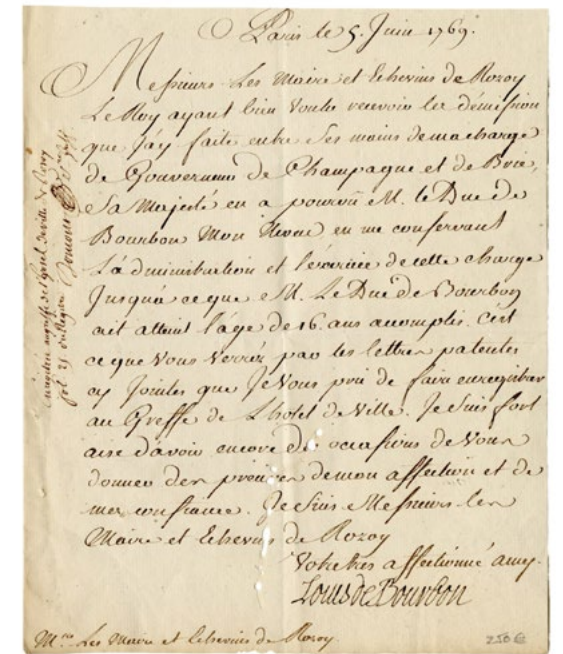 Paris le 5. Juin 1769.
Messieurs Les Maire et Echevins de Rozoy
Le Roy ayant bien voulu recevoir la démission
que J'ay faite entre Ses mains de ma charge
de Gouverneur de Champagne et de Brie,
Sa Majesté en a pourvû M. le Duc de
Bourbon Mon Neveu en me conservant
L'administration et l'exercice de cette charge
Jusqu'à ce que M. Le Duc de Bourbon
ait atteint l'âge de 16. ans accomplis. C'est
ce que Vous Verrés par les lettres patentes
cy Jointes que Je Vous prie de faire enregistrer
au Greffe de L'hotel de Ville. Je Suis fort
aise d'avoir encore des occasions de Vous
donner des preuves de mon affection et de
ma confiance. Je Suis Messieurs les
Maire et Echevins de Rozoy
Votre tres affectionné amy.
Louis de Bourbon
Mrs. Les Maire et Echevins de Rozoy.
250 €
Enregistré au greffe de l'hotel de ville de Rozoy